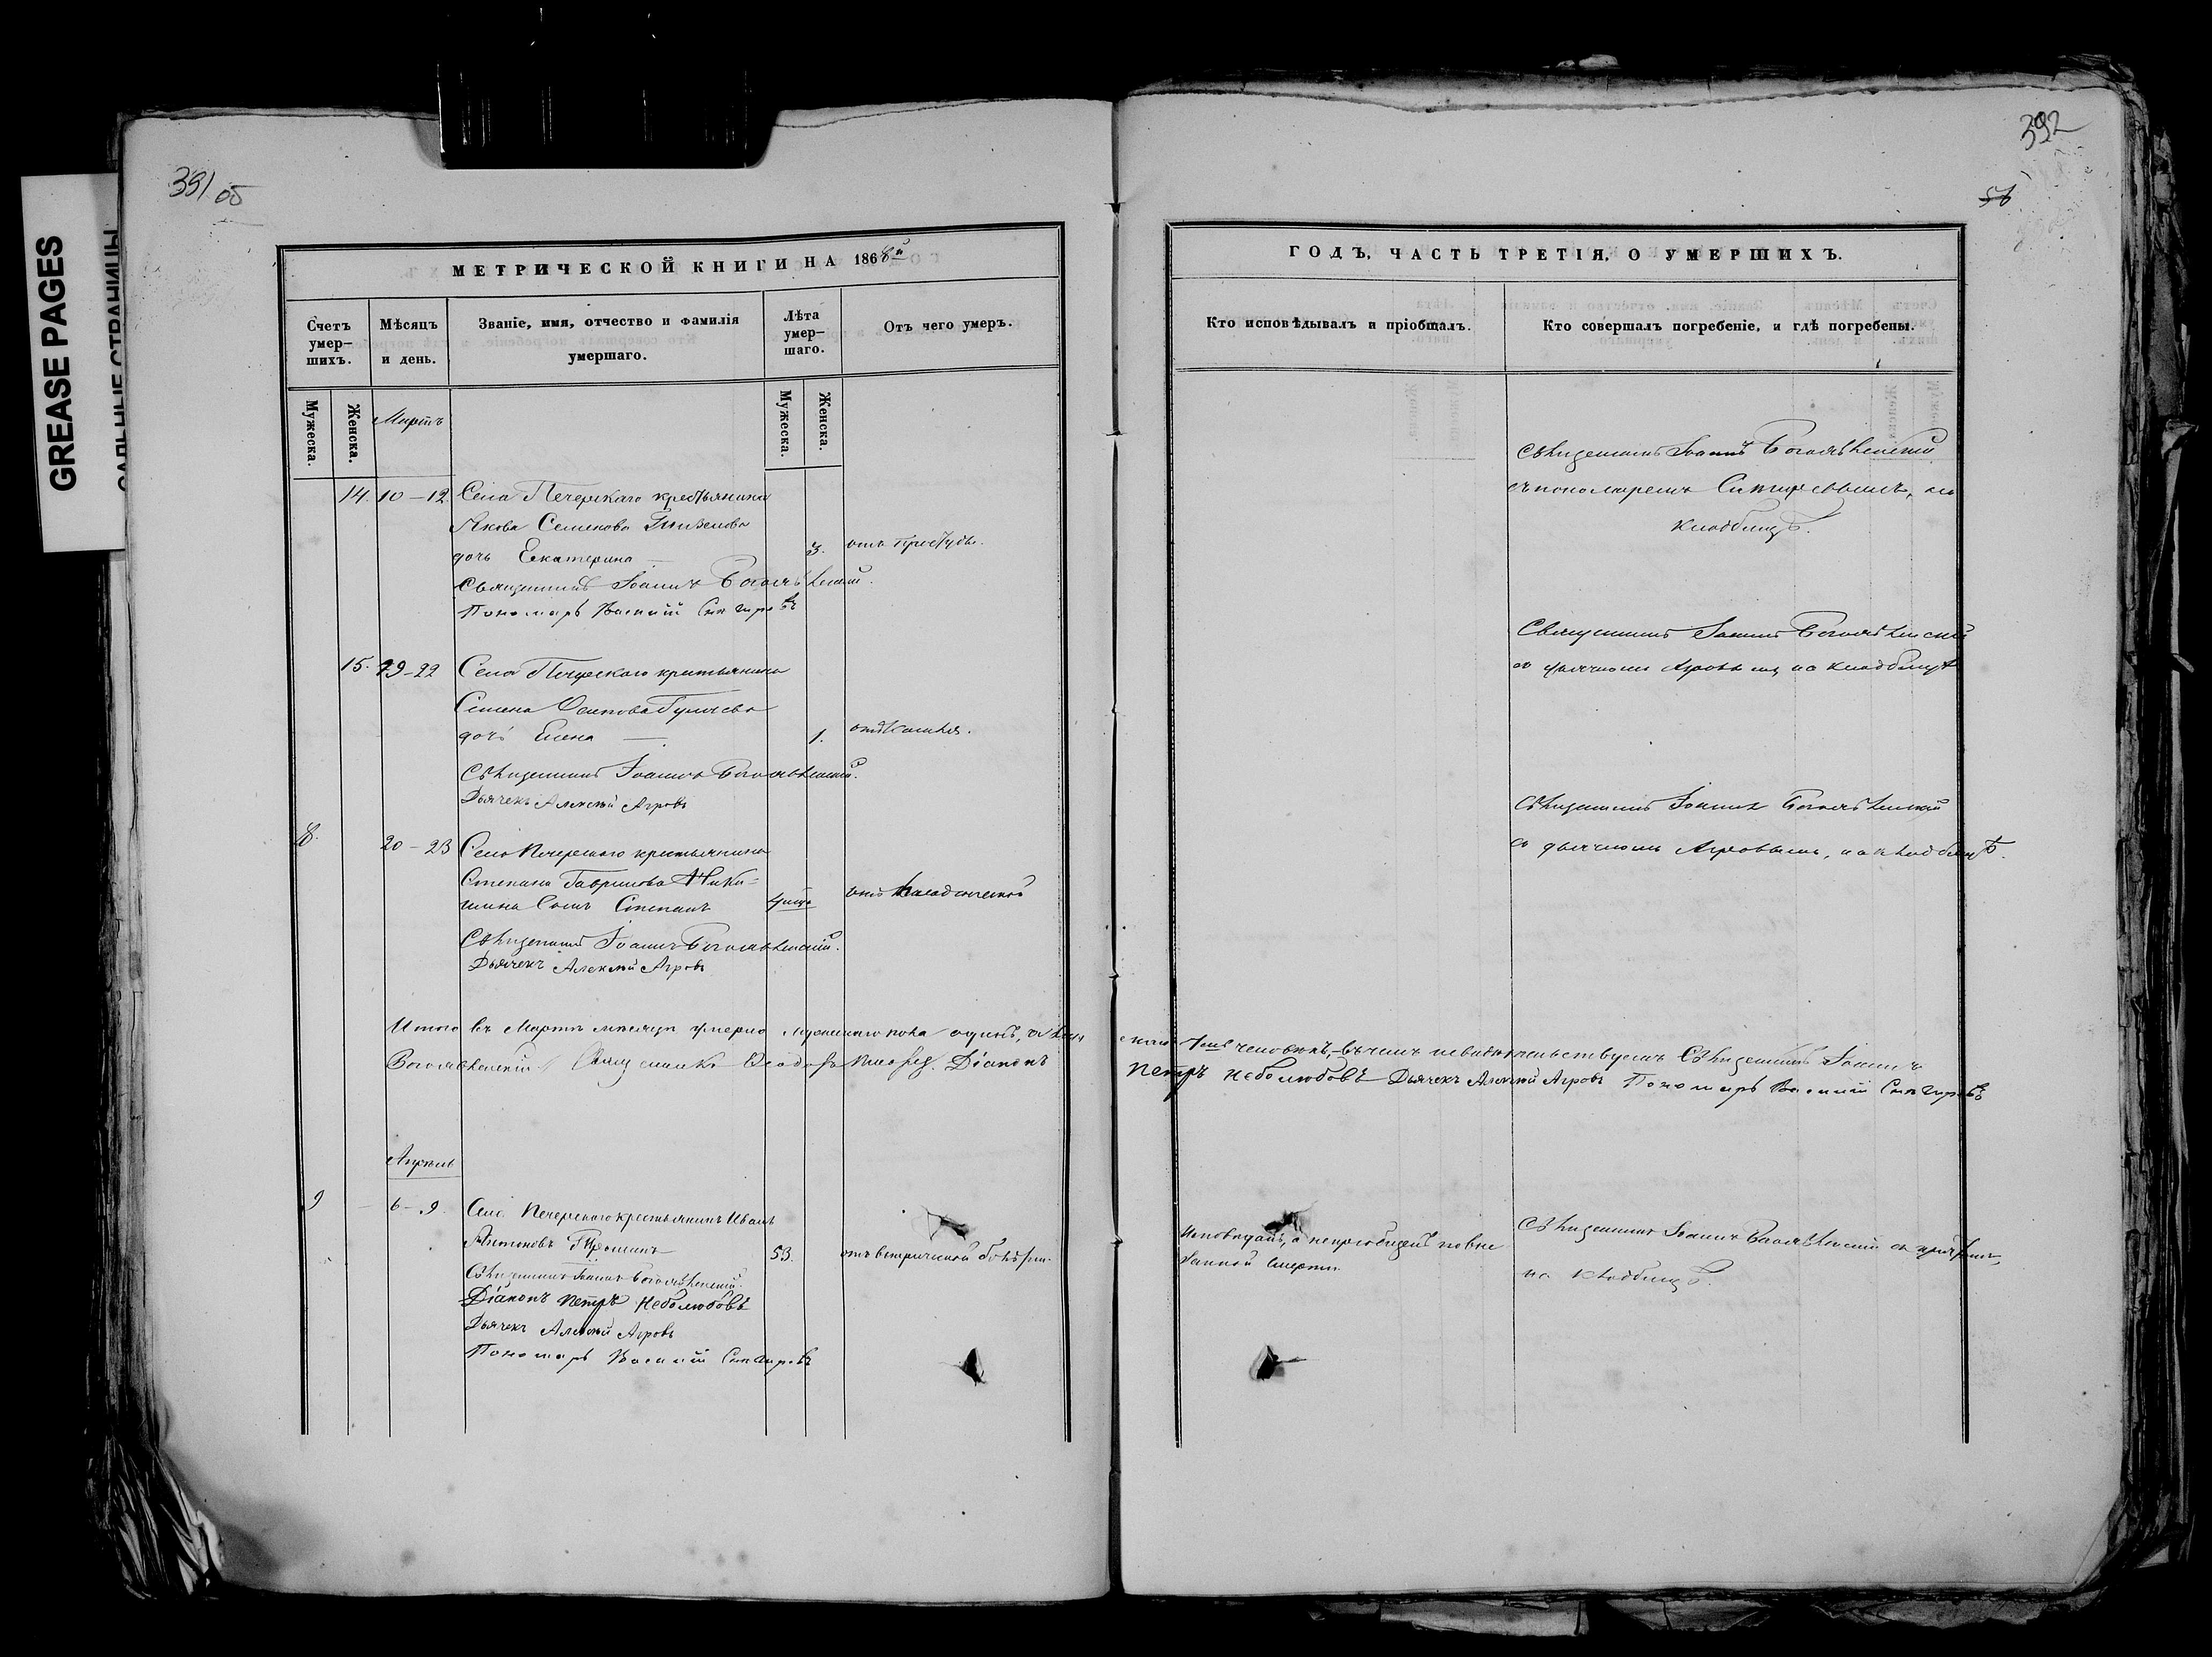 GREASE PAGES
САЛЬНЫЕ СТРАНИЦЫ
391 об
МЕТРИЧЕСКОЙ КНИГИ НА 1868й
Счетъ умер-шихъ.
Мѣсяцъ и день.
Званіе, имя, отчество и фамилія умершаго.
Лѣта умер-шаго.
Отъ чего умеръ.
Мужеска.
Женска.
Мужеска.
Женска.
Мартъ
14. 10-12 Села Печерскаго крестьянина
Якова Семенова
дочь Екатерина 3. отъ простуды.
Священникъ Іоаннъ Богоявленскій.
Пономарь Василій
15. 19-22 Села Печерскаго крестьянина
Семена Осипова
дочь Елена 1. отъ кашля.
Священникъ Іоаннъ Богоявленскій.
Дьячекъ Алексѣй Агровъ
8. 20-23 Села Печерскаго крестьянина
Степана Гаврилова Ники=
шина сынъ Степанъ отъ младенческой
Священникъ Іоаннъ Богоявленскій.
Дьячекъ Алексѣй Агровъ
Итого въ Мартѣ мѣсяцѣ умерло мужескаго пола
Богоявленскій Священникъ Діаконъ
Апрѣль
9 6-9. Села Печерскаго крестьянинъ Иванъ
Антоновъ 53. отъ
Священникъ Іоаннъ Богоявленскій.
Діаконъ Петръ Неболюбовъ
Дьячекъ Алексѣй Агровъ
Пономарь Василій
392
56
ГОДЪ, ЧАСТЬ ТРЕТІЯ, О УМЕРШИХЪ.
Кто исповѣдывалъ и пріобщалъ.
Кто совершалъ погребеніе, и гдѣ погребены.
Священникъ Іоаннъ Богоявленскій
съ пономаремъ на
кладбищѣ.
Священникъ Іоаннъ Богоявленскій
съ дьячкомъ Агровымъ, на кладбищѣ
Священникъ Іоаннъ Богоявленскій
съ дьячкомъ Агровымъ, на кладбищѣ.
человѣкъ,-въ чемъ свидѣтельствуемъ Священникъ Іоаннъ
Петръ Неболюбовъ Дьячекъ Алексѣй Агровъ Пономарь Василій
Исповѣданъ, а непріобщенъ по вне
запной смерти.
Священникъ Іоаннъ Богоявленскій съ причтомъ,
на кладбищѣ.